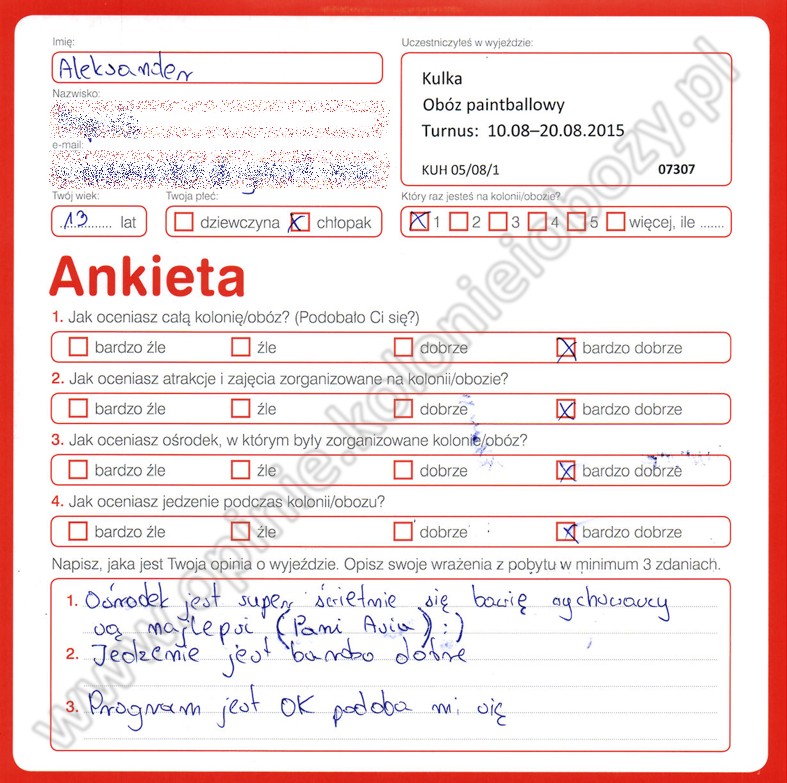 Imię:
Aleksander
Uczestniczyłeś w wyjeździe:
Kulka
Obóz paintballowy
Turnus: 10.08–20.08.2015
KUH 05/08/1 07307
Nazwisko:
e-mail:
Twój wiek: Twoja płeć: Który raz jesteś na kolonii/obozie?
13 lat dziewczyna chłopak 1 2 3 4 5 więcej, ile .......
Ankieta
1. Jak oceniasz całą kolonię/obóz? (Podobało Ci się?)
bardzo źle źle dobrze bardzo dobrze
2. Jak oceniasz atrakcje i zajęcia zorganizowane na kolonii/obozie?
bardzo źle źle dobrze bardzo dobrze
3. Jak oceniasz ośrodek, w którym były zorganizowane kolonie/obóz?
bardzo źle źle dobrze bardzo dobrze
4. Jak oceniasz jedzenie podczas kolonii/obozu?
bardzo źle źle dobrze bardzo dobrze
Napisz, jaka jest Twoja opinia o wyjeździe. Opisz swoje wrażenia z pobytu w minimum 3 zdaniach.
1. Ośrodek jest super się bawię
są najlepsi (Pani ) :)
2. Jedzenie jest bardo dobre
3. Program jest OK podoba mi się
www.opinie.kolonieiobozy.pl